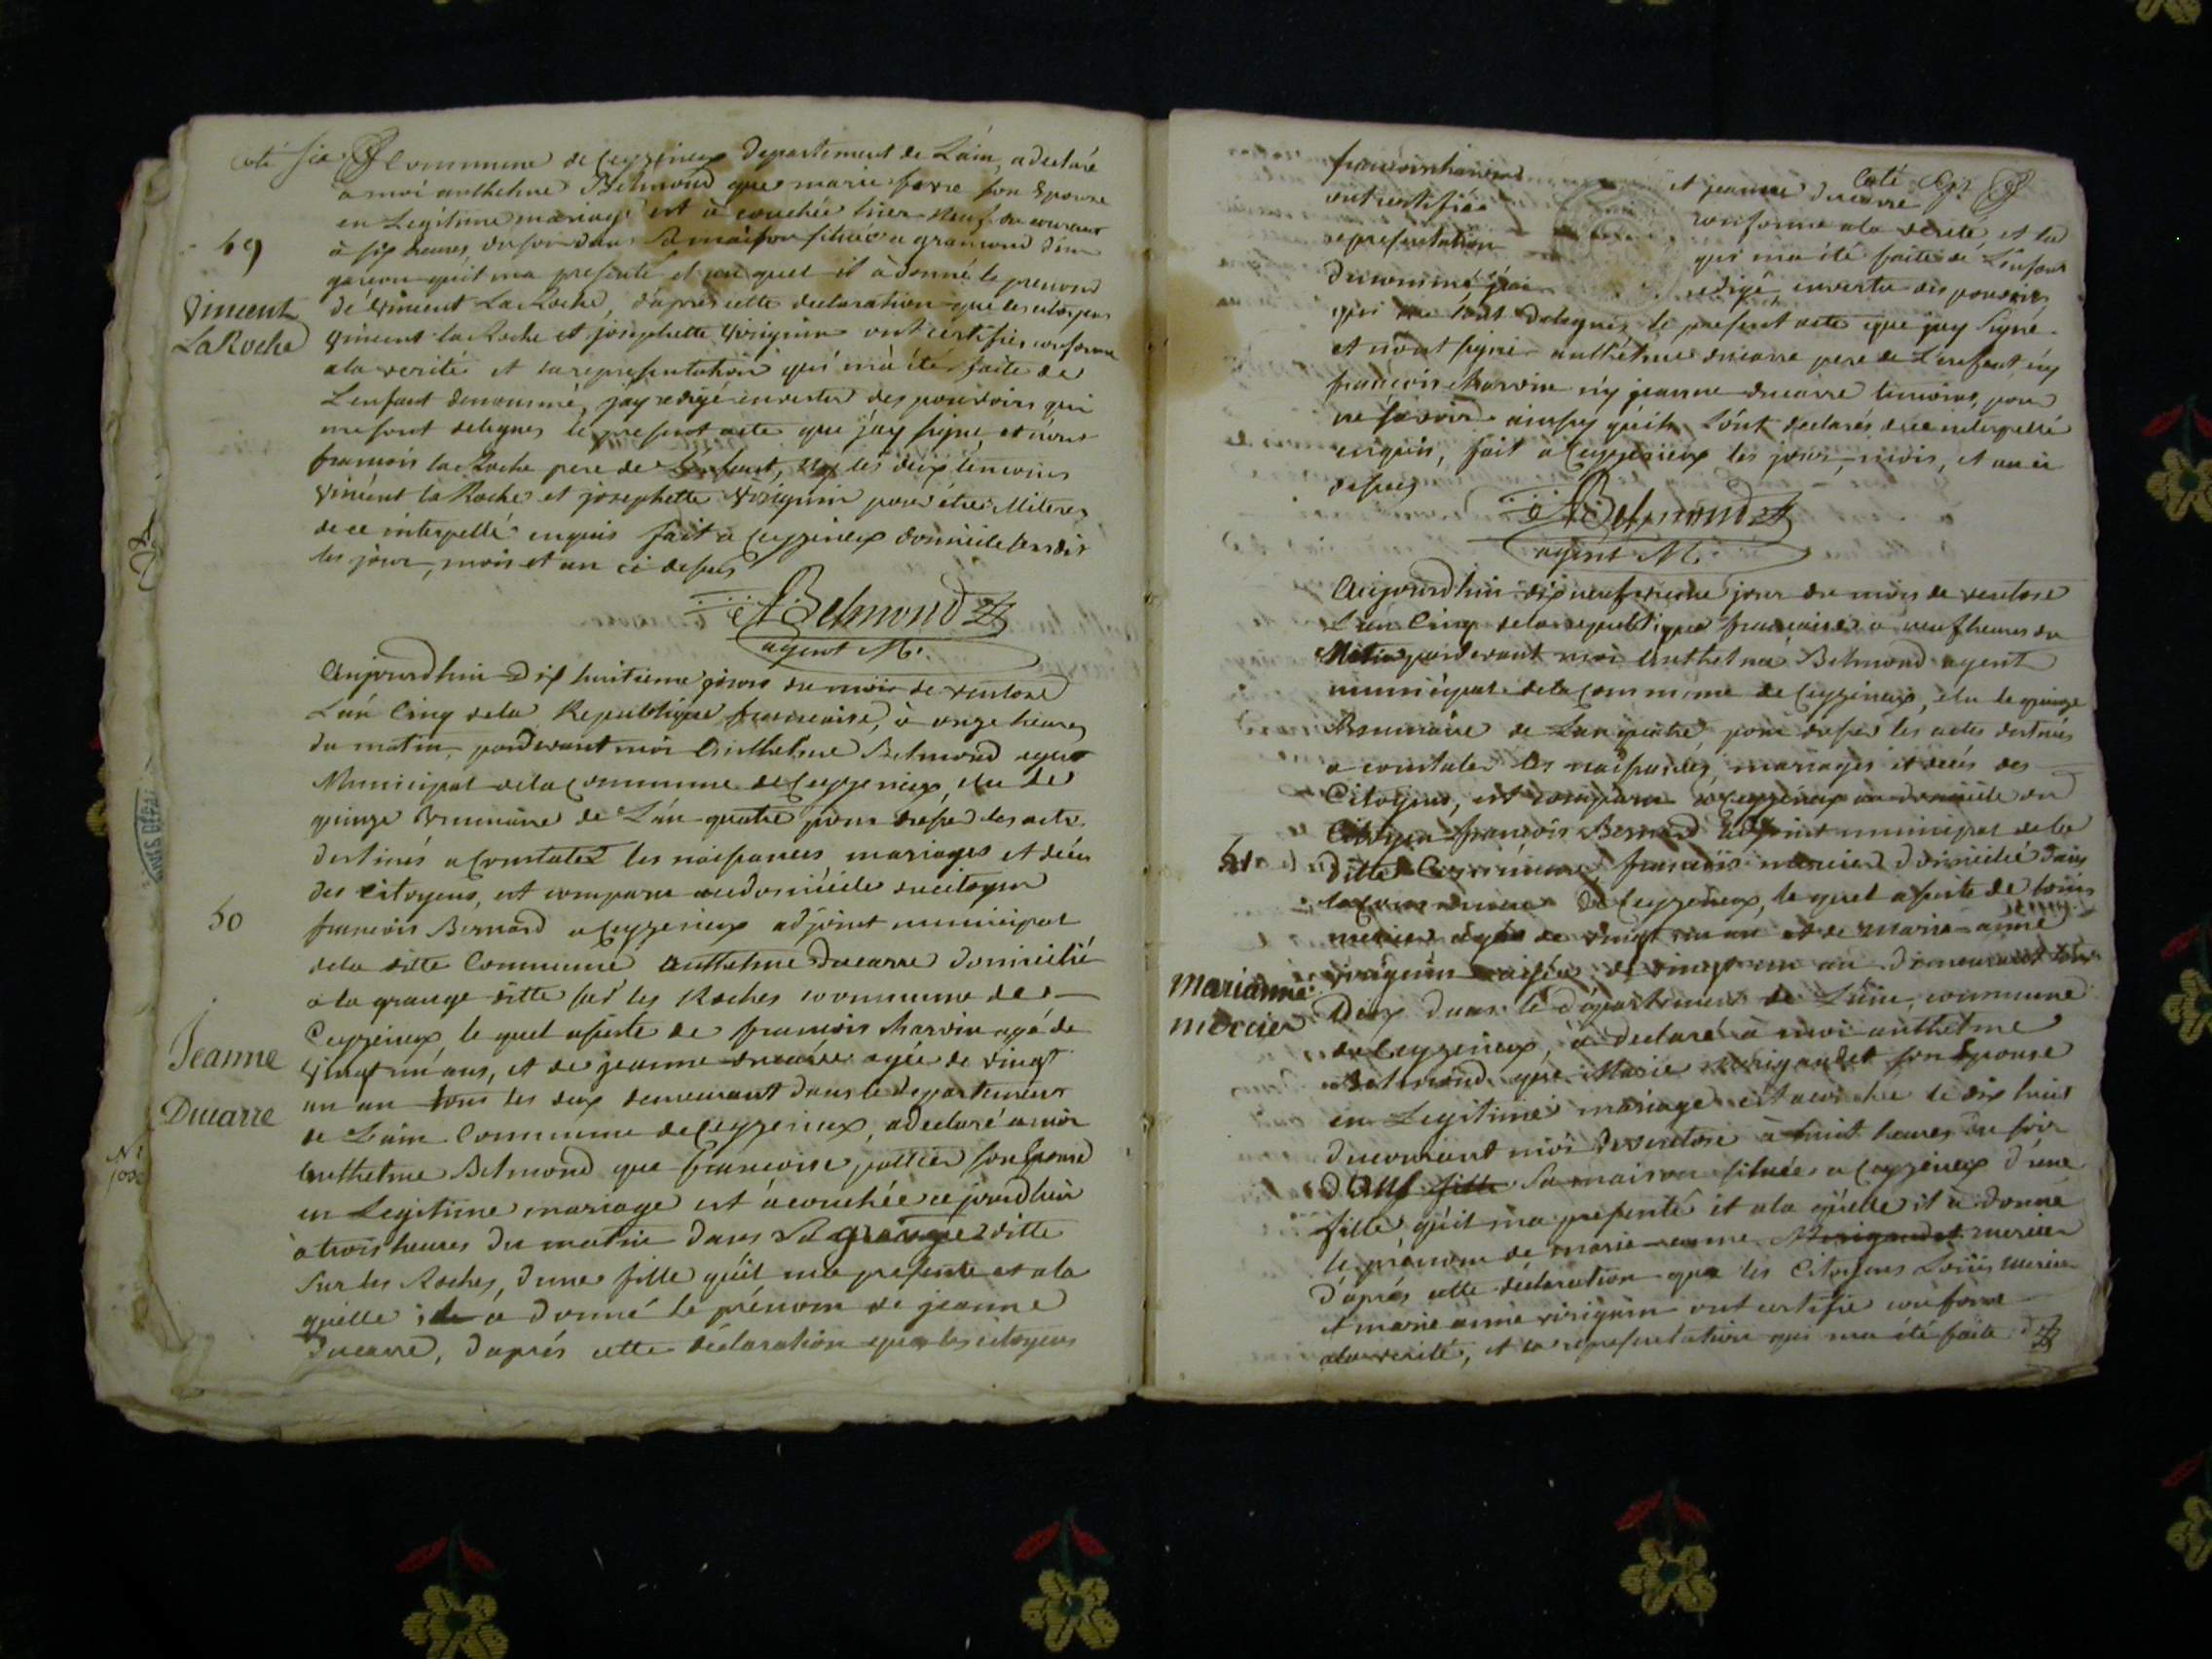 coté six commune de Ceyzerieux departement de Lain, a declaré
a moi anthelme Belmond que marie favre son Epouse
en Legitime mariage est a couchée hier neuf du courant
à six heures du soir dans sa maison située a gramond d'un
49
garcon quil ma presenté et au quel il à donné le prenom
de Vincent La Roche, d'après cette declaration que les citoyens
Vincent
LaRoche
Vincent la Roche et josephette Virignin ont certifier conforme
ala verité et la representation qui m'a été faite de
L'enfant denommé, jay redigé envertu des pouvoirs qui
me sont delegues le present acte que j'ay signe, et non
francois la Roche pere de L'enfant, ny les deux temoins
Vincent la Roche et josephette Virignin pour être illiterés
de ce interpellé enquis fait a Ceyzerieux domicile
les jour, mois et an ci dessus
ABelmond
agent M.
Aujourdhui Dix huitieme jour du mois de ventose
L'an Cinq dela Republique francaise, à onze heures
du matin, pardevant moi Anthelme Belmond agent
Municipal dela Commune de Ceyzerieux, élu le
quinze Brumaire de L'an quatre pour dresser les actes
destinés a Constater les naissances mariages et décès
des citoyens, est comparu au domicile du citoyen
50
francois Bernard a Ceyzerieux adjoint municipal
dela ditte Commune anthelme Ducarre domicilié
a la grange ditte sur les Roches commune de
Ceyzerieux le quel assisté de francois charvin agé de
Jeanne
Vingt un ans, et de jeanne ducarre agée de vingt
un an tous les deux demeurant dans le departement
Ducarre
de L'ain Commune de Ceyzerieux, a declaré a moi
Anthelme Belmond que francoise pottier son Epouse
en Legitime mariage est àcouchée ce jourdhui
à trois heures du matin dans sa grange ditte
sur les Roches, d'une fille qu'il ma presente et ala
quelle il a donné le prénom de jeanne
Ducarre, d'aprés cette déclaration que les citoyens
coté Sept
francois charvin et jeanne Ducarre
ont certifiée conforme ala verité et la
representation qui ma été faite de L'enfant
denommé jai redigé envertu des pouvoirs
qui me sont delegués le present acte que jay signé
et n'ont signé anthelme ducarre pere de L'enfant ny
francois charvin ny jeanne ducarre temoins, pour
ne savoir ainsy qu'ils L'ont declarés de ce interpellé
enquis, fait a Ceyzerieux les jour, mois, et an ci
dessus
ABelmond
agent M.
Aujourdhui dix neuvieme jour du mois de ventose
L'an Cinq dela republique francaise à neuf heures du
Matin pardevant moi Anthelme Belmond agent
municipal dela Commune de Ceyzerieux, elu le quinze
Brumaire de L'an quatre, pour dresser les actes destinés
a constater les naissances, mariages et décès des
Citoyens, est comparu a Ceyzerieux au domicile du
Citoyen francois Bernard adjoint municipal dela
51
ditte Commune, francois mercier domicilié dans
la Commune de Ceyzerieux, le quel assisté de Louis
mercier agée de vingt un an et de marie anne
virignin agée de vingt un an demeurant tous
Marianne
mercier
Deux dans le département de L'ain, commune
de Ceyzerieux, à declaré à moi anthelme
Belmond que Marie son Epouse
en Legitime mariage est acouchée le dix huit
du courant mois de ventose à huit heures du soir
dans sa maison située a Ceyzerieux d'une
fille, qu'il ma presenté et ala quelle il a donné
le prénom de marie anne mercier
D'aprés cette déclaration que les Citoyens Loüis mercier
et marie anne virignin ont certifie conforme
ala verité, et la representation qui ma été faite